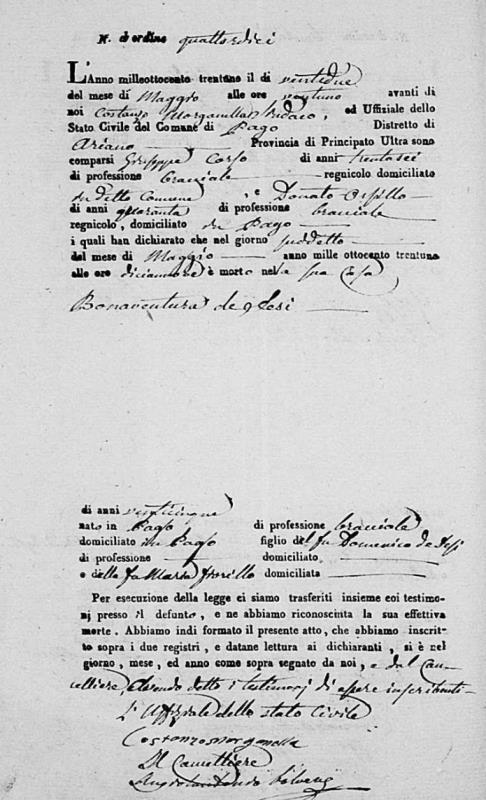 N. d'ordine quattordici
L'Anno milleottocento trentuno il dì ventidue
del mese di Maggio alle ore ventuno avanti di
noi Costanzo Morganella Sindaco, ed Uffiziale dello
Stato Civile del Comune di Pago Distretto di
Ariano Provincia di Principato Ultra sono
comparsi Giuseppe Corso di anni trentasei
di professione bracciale regnicolo domiciliato
in detto Comune, e Donato
di anni quaranta di professione bracciale
regnicolo, domiciliato in Pago
i quali han dichiarato che nel giorno suddetto
del mese di Maggio anno mille ottocento trentuno
alle ore diciannove è morto nella sua Casa
Bonaventura de
di anni venticinque
nato in Pago di professione bracciale
domiciliato in Pago figlio del fu Domenico de
di professione domiciliato
e della fu Maria Fiorillo domiciliata
Per esecuzione della legge ci siamo trasferiti insieme coi testimo-
nj presso il defunto, e ne abbiamo riconosciuta la sua effettiva
morte. Abbiamo indi formato il presente atto, che abbiamo inscrit-
to sopra i due registri, e datane lettura ai dichiaranti, si è nel
giorno, mese, ed anno come sopra segnato da noi, e dal Can-
celliere, avendo detto i testimonj di essere inscribenti
L'Uffiziale dello stato Civile
Costanzo Morganella
Il Cancelliere